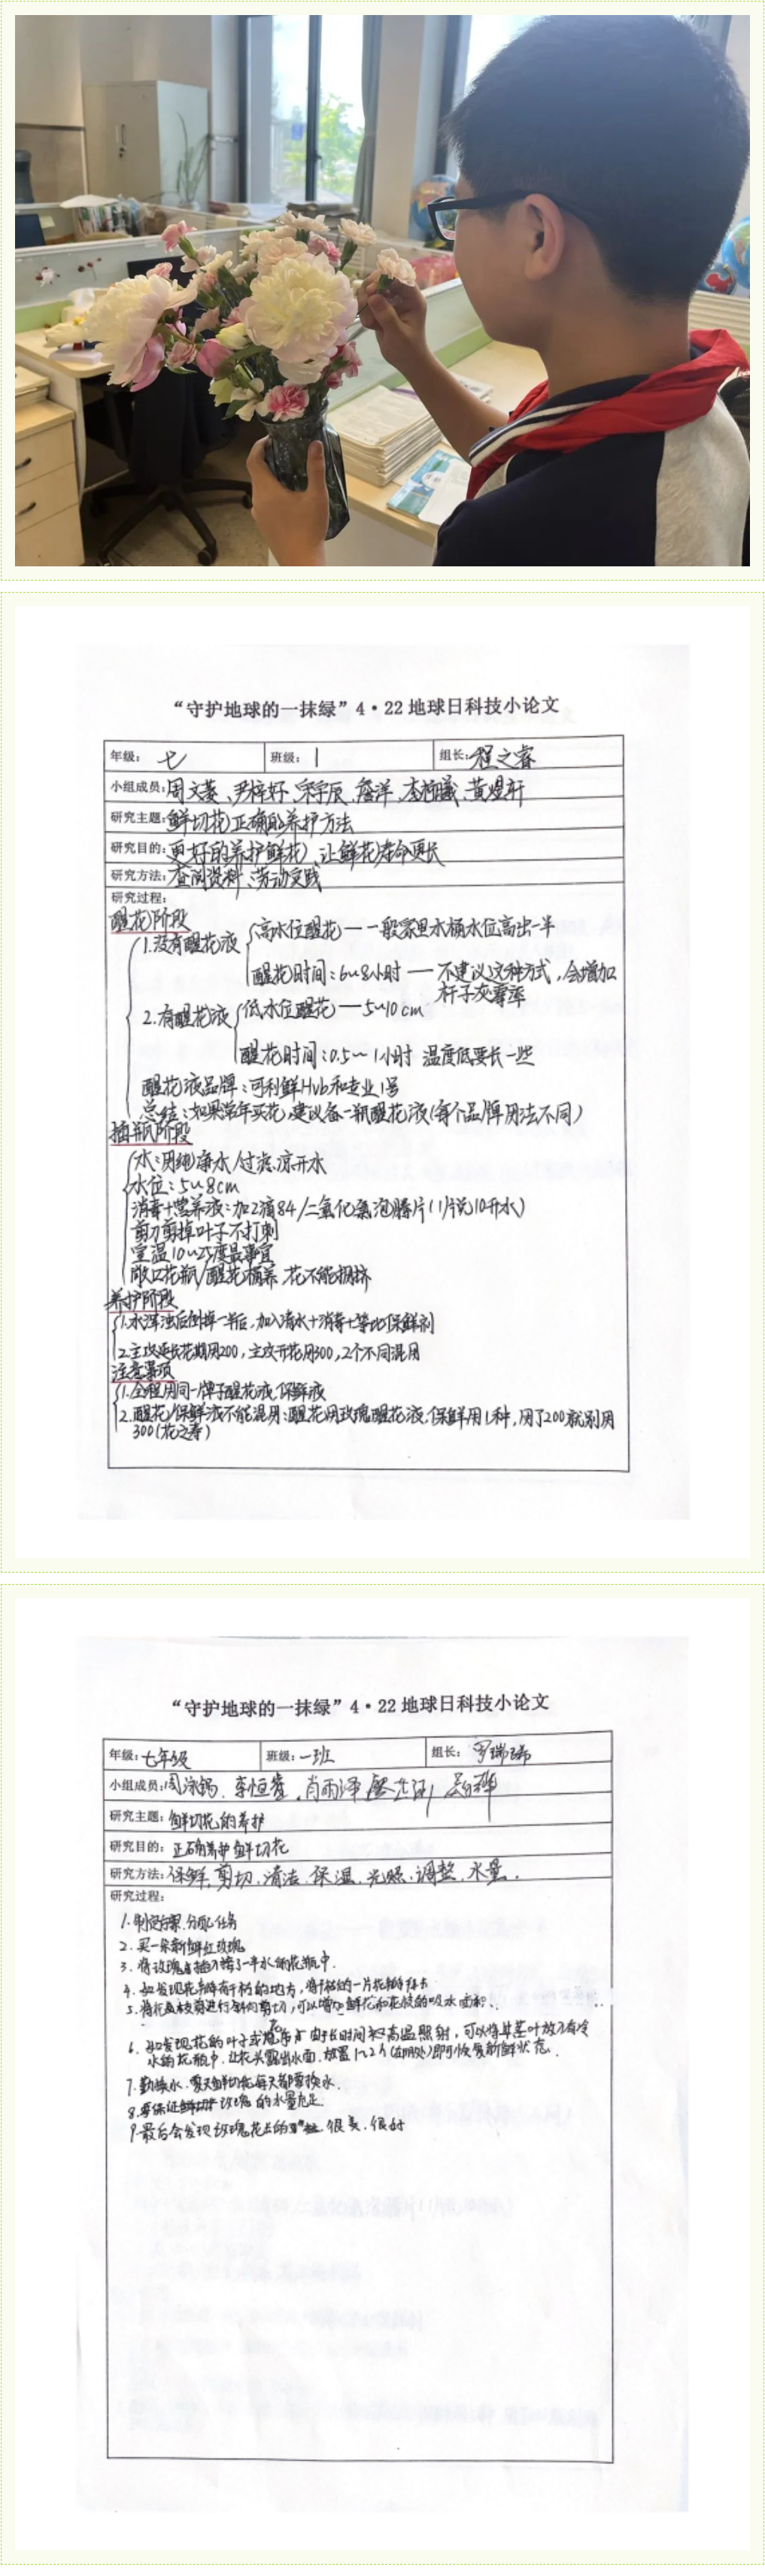 “守护地球的一抹绿”4·22地球日科技小论文
年级: 七 班级: 1 组长: 程之睿
小组成员: 周文菱、尹梓好、宋宇辰、詹洋、李栢曦、黄煜轩
研究主题: 鲜切花正确的养护方法
研究目的: 更好的养护鲜花、让鲜花寿命更长
研究方法: 查阅资料、劳动实践
研究过程:
醒花阶段
1.没有醒花液 高水位醒花——一般家里水桶水位高出一半
醒花时间:6~8小时——不建议这种方式,会增加
杆子灰霉率
2.有醒花液 低水位醒花——5~10cm
醒花时间:0.5~1小时 温度低要长一些
醒花液品牌:可利鲜Hvb和专业1号
总结:如果常年买花,建议备一瓶醒花液(每个品牌用法不同)
插瓶阶段
水:用纯净水/过滤凉开水
水位:5~8cm
消毒+营养液:加2滴84/二氧化氯泡腾片(1片兑10升水)
剪刀剪掉叶子不打刺
室温10~25度最事宜
敞口花瓶/醒花桶养 花不能拥挤
养护阶段
1.水浑浊后倒掉一半后,加入清水+消毒+等比保鲜剂
2.主攻延长花期用200,主攻开花用300,2个不同混用
注意事项
1.全程用同一牌子醒花液、保鲜液
2.醒花/保鲜液不能混用:醒花用玫瑰醒花液,保鲜用1种,用了200就别用
300(花之寿)
“守护地球的一抹绿”4·22地球日科技小论文
年级: 七年级 班级: 一班 组长: 罗瑞瑞
小组成员: 周泳锡、李恒睿、肖雨泽
研究主题: 鲜切花的养护
研究目的: 正确养护鲜切花
研究方法: 保鲜、剪切、清洁、保温、光照、调整、水量.
研究过程:
1.制定方案,分配任务
2.买一朵新鲜红玫瑰
3.将玫瑰插入装了一半水的花瓶中.
4.如发现花瓣有干枯的地方,将干枯的一片花瓣拜去
5.将花及枝剪进行斜向剪切,可以增加鲜花和花枝的吸水面积.
6.如发现花的叶子或花 由于长时间被高温照射,可以将其茎叶放入有冷
水的花瓶中,让花头露出水面,放置1~2个(左右处)即可恢复新鲜状态.
7.勤换水,夏天鲜切花每天都要换水.
8.要保证鲜切 玫瑰的水量充足.
9.最后会发现玫瑰花 很美、很好